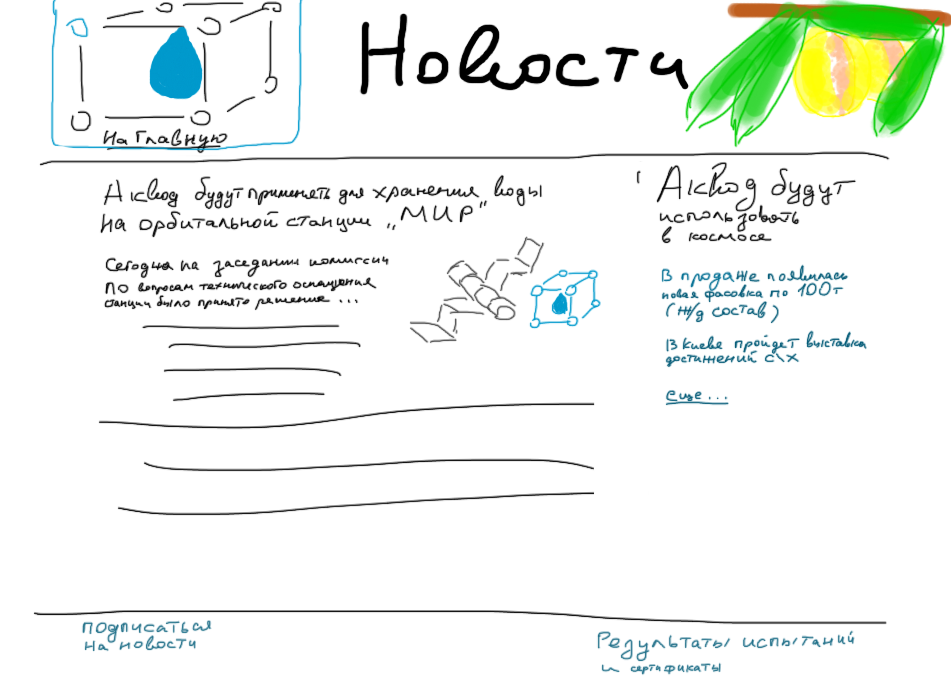 На главную
Новости
Аквод будут применять для хранения воды
на орбитальной станции "МИР"
Сегодня на заседании комиссии
по вопросам технического оснащения
станции было принято решение ...
Аквод будут
использовать
в космосе
В продаже появилась
новая фасовка по 100т
(ж/д состав)
В Киеве пройдет выставка
достижений с\х
еще...
подписаться
на новости
Результаты испытаний
и сертификаты